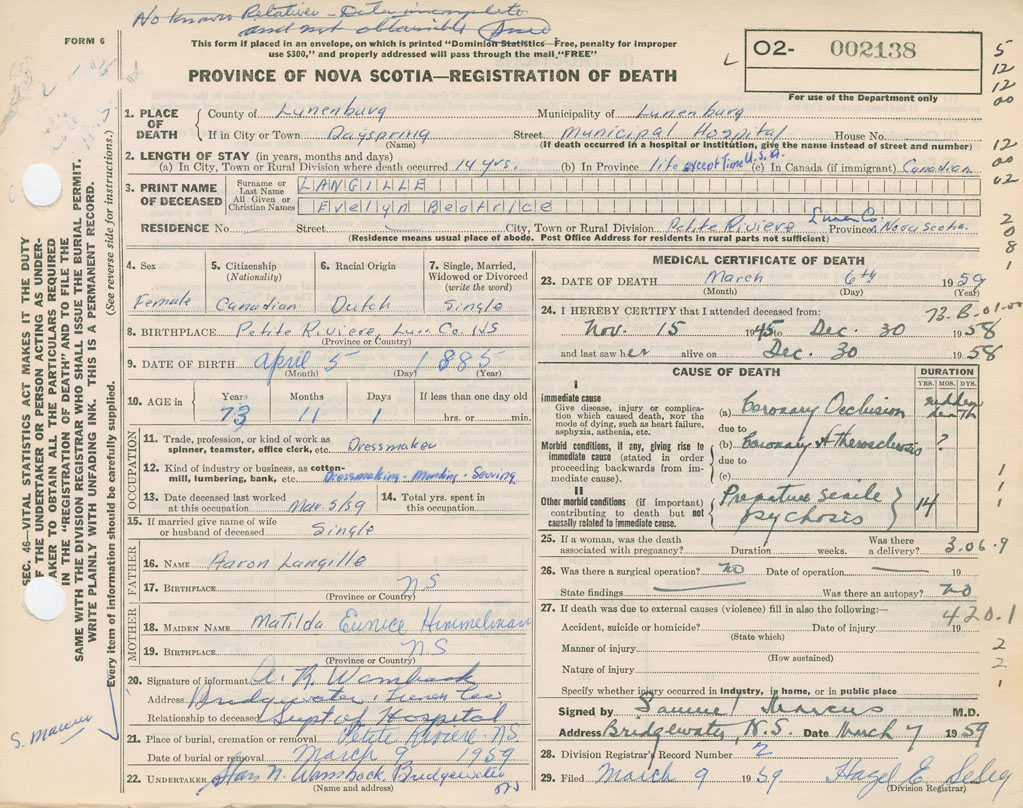 No Known Relatives - Data incomplete
and not obtainable
FORM 6
This form if placed in an envelope, on which is printed "Dominion Statistics—Free, penalty for improper
use $300," and properly addressed will pass through the mail "FREE"
PROVINCE OF NOVA SCOTIA—REGISTRATION OF DEATH
L
O2- 002138
For use of the Department only
5
12
12
00
12
00
02
2
0
8
1
1. PLACE OF DEATH
County of Lunenburg Municipality of Lunenburg
If in City or Town Dayspring Street Municipal Hospital House No.
(Name) (If death occurred in a hospital or institution, give the name instead of street and number)
2. LENGTH OF STAY (in years, months and days)
(a) In City, Town or Rural Division where death occurred 14 yrs. (b) In Province life except Time U.S.A. (c) In Canada (if immigrant) Canadian
3. PRINT NAME OF DECEASED
Surname or Last Name LANGILLE
All Given or Christian Names Evelyn Beatrice
RESIDENCE No. Street City, Town or Rural Division Petite Riviere Lunen Co. Province Nova Scotia
(Residence means usual place of abode. Post Office Address for residents in rural parts not sufficient)
SEC. 46—VITAL STATISTICS ACT MAKES IT THE DUTY
OF THE UNDERTAKER OR PERSON ACTING AS UNDER-
TAKER TO OBTAIN ALL THE PARTICULARS REQUIRED
IN THE "REGISTRATION OF DEATH" AND TO FILE THE
SAME WITH THE DIVISION REGISTRAR WHO SHALL ISSUE THE BURIAL PERMIT.
WRITE PLAINLY WITH UNFADING INK. THIS IS A PERMANENT RECORD.
Every item of information should be carefully supplied. (See reverse side for instructions.)
4. Sex
Female
5. Citizenship
(Nationality)
Canadian
6. Racial Origin
Dutch
7. Single, Married,
Widowed or Divorced
(write the word)
Single
8. BIRTHPLACE Petite Riviere, Lun. Co. NS
(Province or Country)
9. DATE OF BIRTH April 5 1885
(Month) (Day) (Year)
10. AGE in
Years Months Days If less than one day old
73 11 1 hrs. or min.
OCCUPATION
11. Trade, profession, or kind of work as
spinner, teamster, office clerk, etc. Dressmaker
12. Kind of industry or business, as cotton-
mill, lumbering, bank, etc. Dressmaking - Mending - Sewing
13. Date deceased last worked
at this occupation Mar. 5/59
14. Total yrs. spent in
this occupation
15. If married give name of wife
or husband of deceased Single
FATHER
16. NAME Aaron Langille
17. BIRTHPLACE NS
(Province or Country)
MOTHER
18. MAIDEN NAME Matilda Eunice Himmelman
19. BIRTHPLACE NS
(Province or Country)
20. Signature of informant A. R. Wambach
Address Bridgewater, Lunen
Relationship to deceased Supt of Hospital
21. Place of burial, cremation or removal Petite Riviere NS
Date of burial or removal March 9 1959
22. UNDERTAKER Wambock, Bridgewater
(Name and address) NS
S. Marcus
MEDICAL CERTIFICATE OF DEATH
23. DATE OF DEATH March 6th 1959
(Month) (Day) (Year)
24. I HEREBY CERTIFY that I attended deceased from: 73. B. 01.00
Nov. 15 1945 to Dec. 30 1958
and last saw her alive on Dec. 30 1958
CAUSE OF DEATH
DURATION
YRS. MOS. DYS.
I
Immediate cause
Give disease, injury or complica-
tion which caused death, not the
mode of dying, such as heart failure,
asphyxia, asthenia, etc.
(a) Coronary Occlusion sudden death
due to
Morbid conditions, if any, giving rise to
immediate cause (stated in order
proceeding backwards from im-
mediate cause).
(b) Coronary Atherosclerosis ?
due to
(c)
II
Other morbid conditions (if important)
contributing to death but not
causally related to immediate cause.
Premature senile
psychosis 14
1
1
1
25. If a woman, was the death
associated with pregnancy? Duration weeks. Was there
a delivery? 3.06.9
26. Was there a surgical operation? no Date of operation 19
State findings Was there an autopsy? no
27. If death was due to external causes (violence) fill in also the following:— 420.1
Accident, suicide or homicide? Date of injury 19
(State which)
Manner of injury 2
(How sustained) 2
Nature of injury 1
Specify whether injury occurred in industry, in home, or in public place
Signed by Samuel Marcus M.D.
Address Bridgewater, N.S. Date March 7 1959
28. Division Registrar's Record Number 2
29. Filed March 9 1959 Hazel E
(Division Registrar)